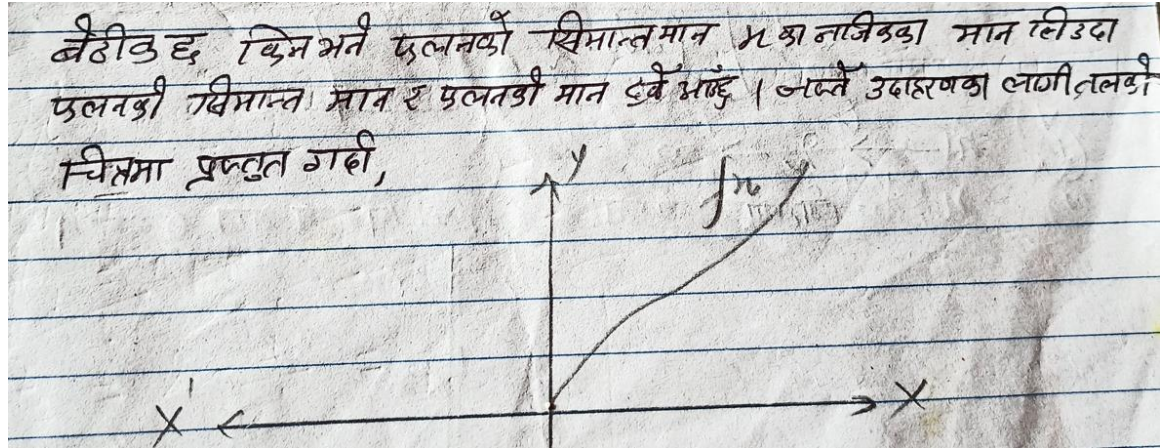 बेठीक छ किनभने फलनको सिमान्तमान x का नजिकका मान लिउदा
फलनको सिमान्त मान र फलनको मान ट्वकै आउँछ । जस्तै उदाहरणका लागी तलको
चित्रमा प्रस्तुत गर्दा,
y
fx
X'
X